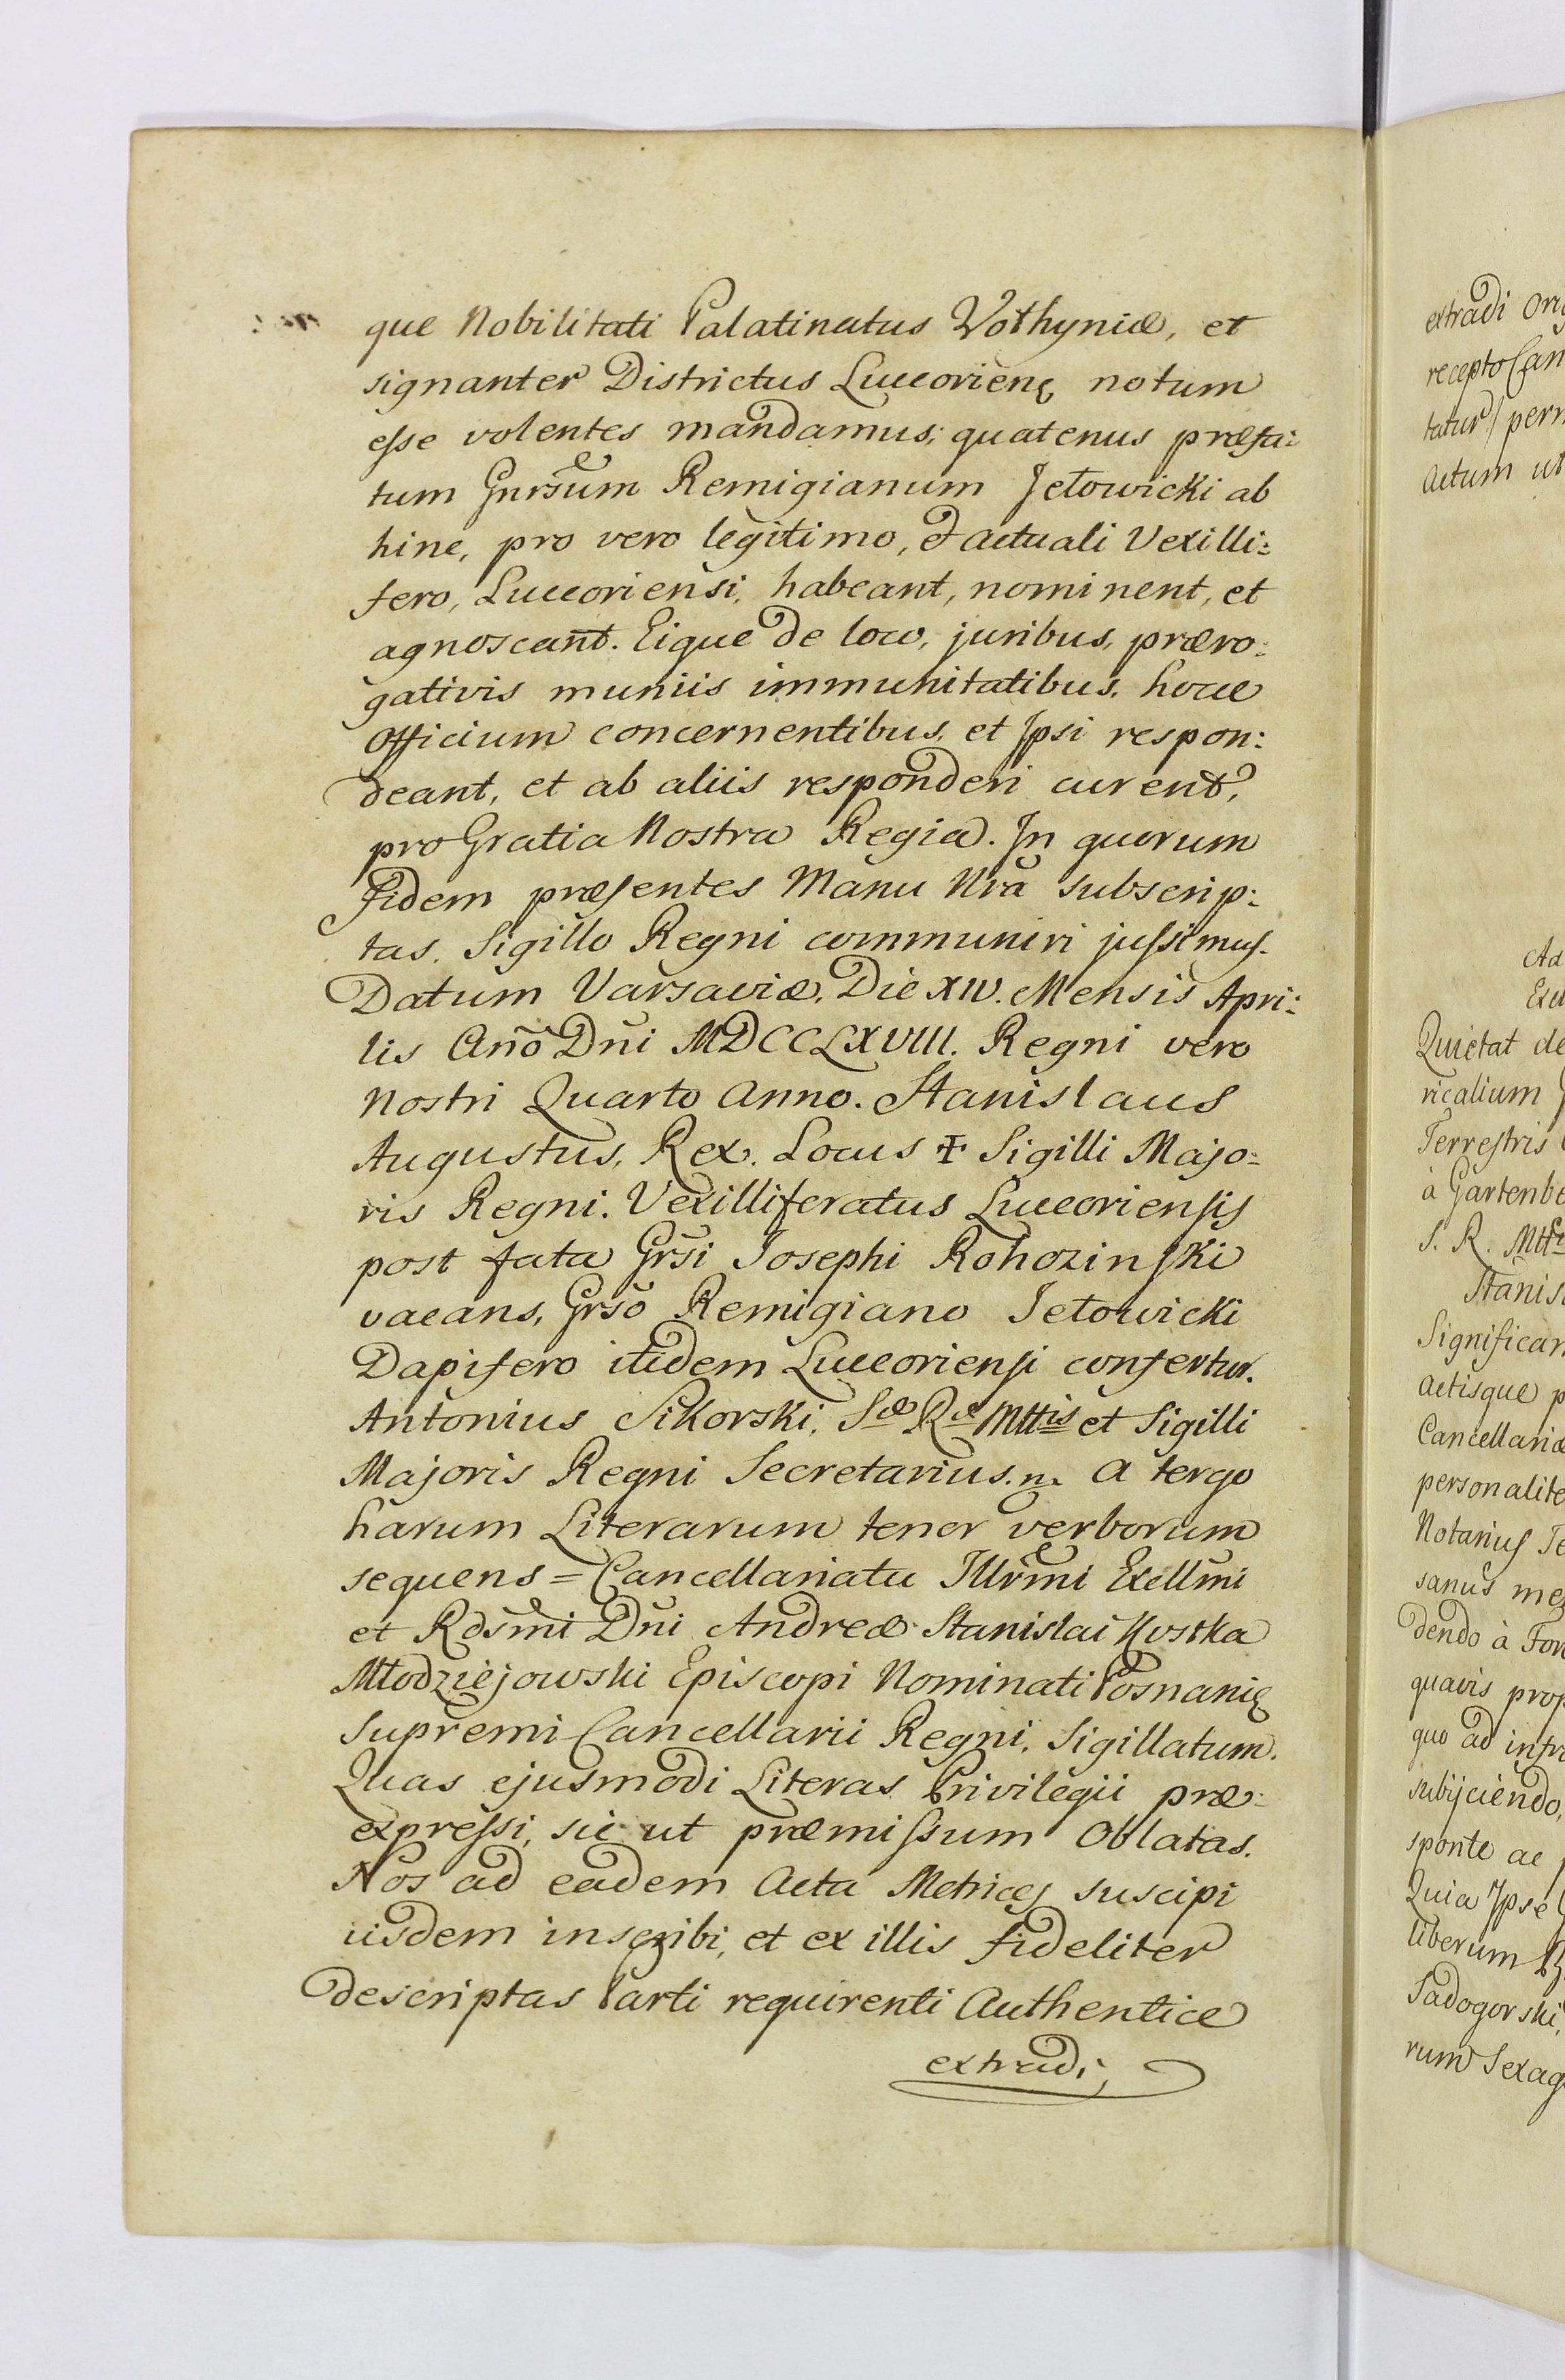 que Nobilitati Palatinatus Wołhyniæ, et
signanter Districtus Lucceorienę notum
eſse volentes mandamus; quatenus præfa:
tum Gnrsum Remigianum Jełowicki ab
hinc, pro vero legitimo, et actuali Vexilli:
fero, Lucceoriensi, habeant, nominent, et
agnoscant. Eique de loco, juribus, præro:
gativis muniis immunitatibus, hocce
Officium concernentibus, et Ipsi respon:
deant, et ab aliis responderi curent,
pro Gratia Nostra Regia. In quorum
Fidem præsentes Manu Nra subscrip:
tas. Sigillo Regni communiri juſsimus.
Datum Varsaviæ, Die XIV. Mensis Apri:
lis Año Dñi MDCCLXVIII. Regni vero
Nostri Quarto Anno. Stanislaus
Augustus, Rex. Locus ✝ Sigilli Majo:
ris Regni. Vexilliferatus Lucceoriensis
post fata Grsi Josephi Rohozinski
vacans, Grso Remigiano Jełowicki
Dapifero itidem Lucceoriensi confertur.
Antonius Sikorski, Sæ Ræ Mttis et Sigilli
Majoris Regni Secretarius. m A tergo
harum Literarum tenor verborum
sequens = Cancellariatu Illrmi Exellmi
et Rdsmi Dñi Andreæ Stanislai Kostka
Młodziejowski Episcopi Nominati Posnanię
Supremi Cancellarii Regni, Sigillatum.
Quas ejusmodi Literas Privilegii præ:
expreſsi, sic ut præmiſsum Oblatas.
Nos ad eadem Acta Metrices suscipi
iisdem inscribi, et ex illis fideliter
descriptas Parti requirenti Authentice
extradi
extradi
recepto
tatur/
Actum ut
Ad
Quietat de
ricalium
Terrestris
à
S. R. Mttis
Actisque
Cancellariæ
Notarius
sanus
dendo à
quavis
quo ad
subijciendo,
sponte ac
Quia Ipse
liberum
Sadogorski,
rum